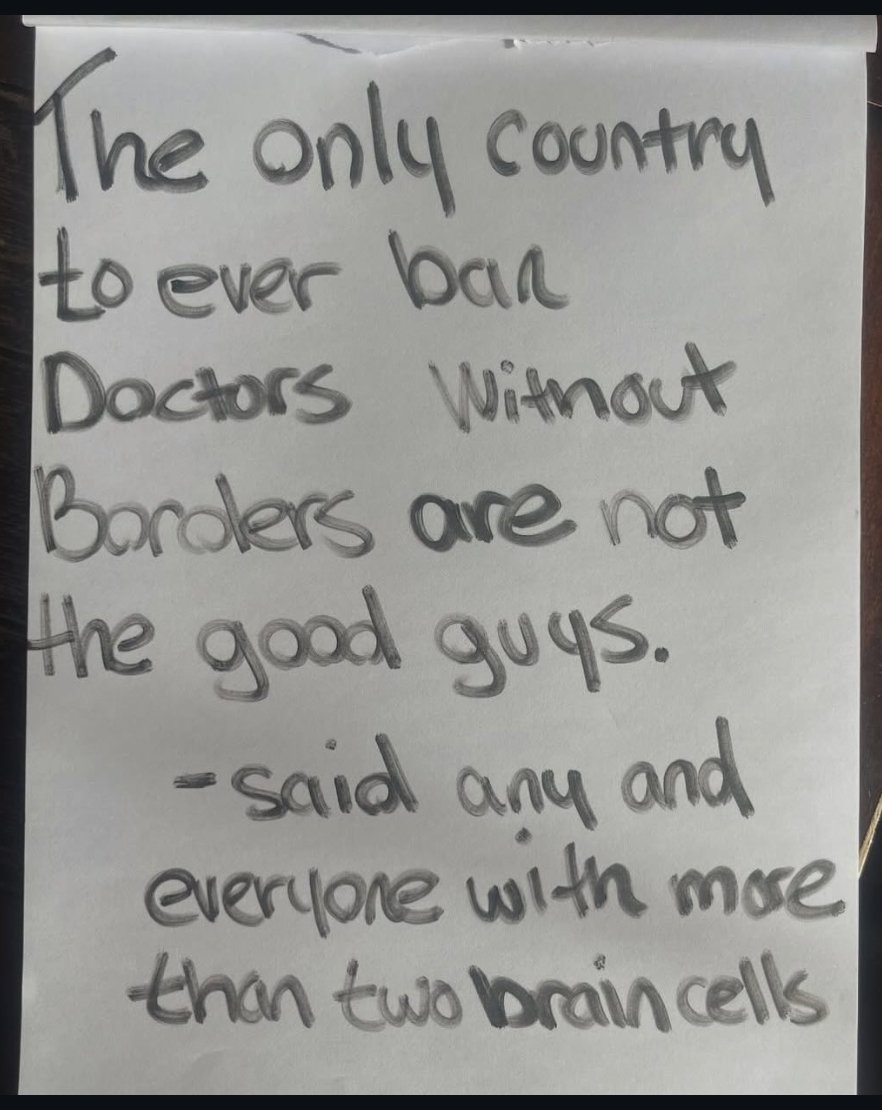 The only country
to ever ban
Doctors Without
Borders are not
the good guys.
-said any and
everyone with more
than two brain cells